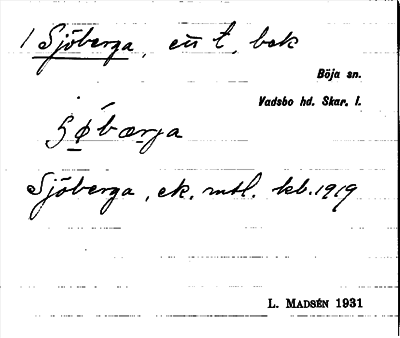 1 Sjöberga, en t, bek
Böja sn.
Vadsbo hd. Skar. l.
Sjöberga, ek. mtl. kb. 1919
L. MADSÉN 1931